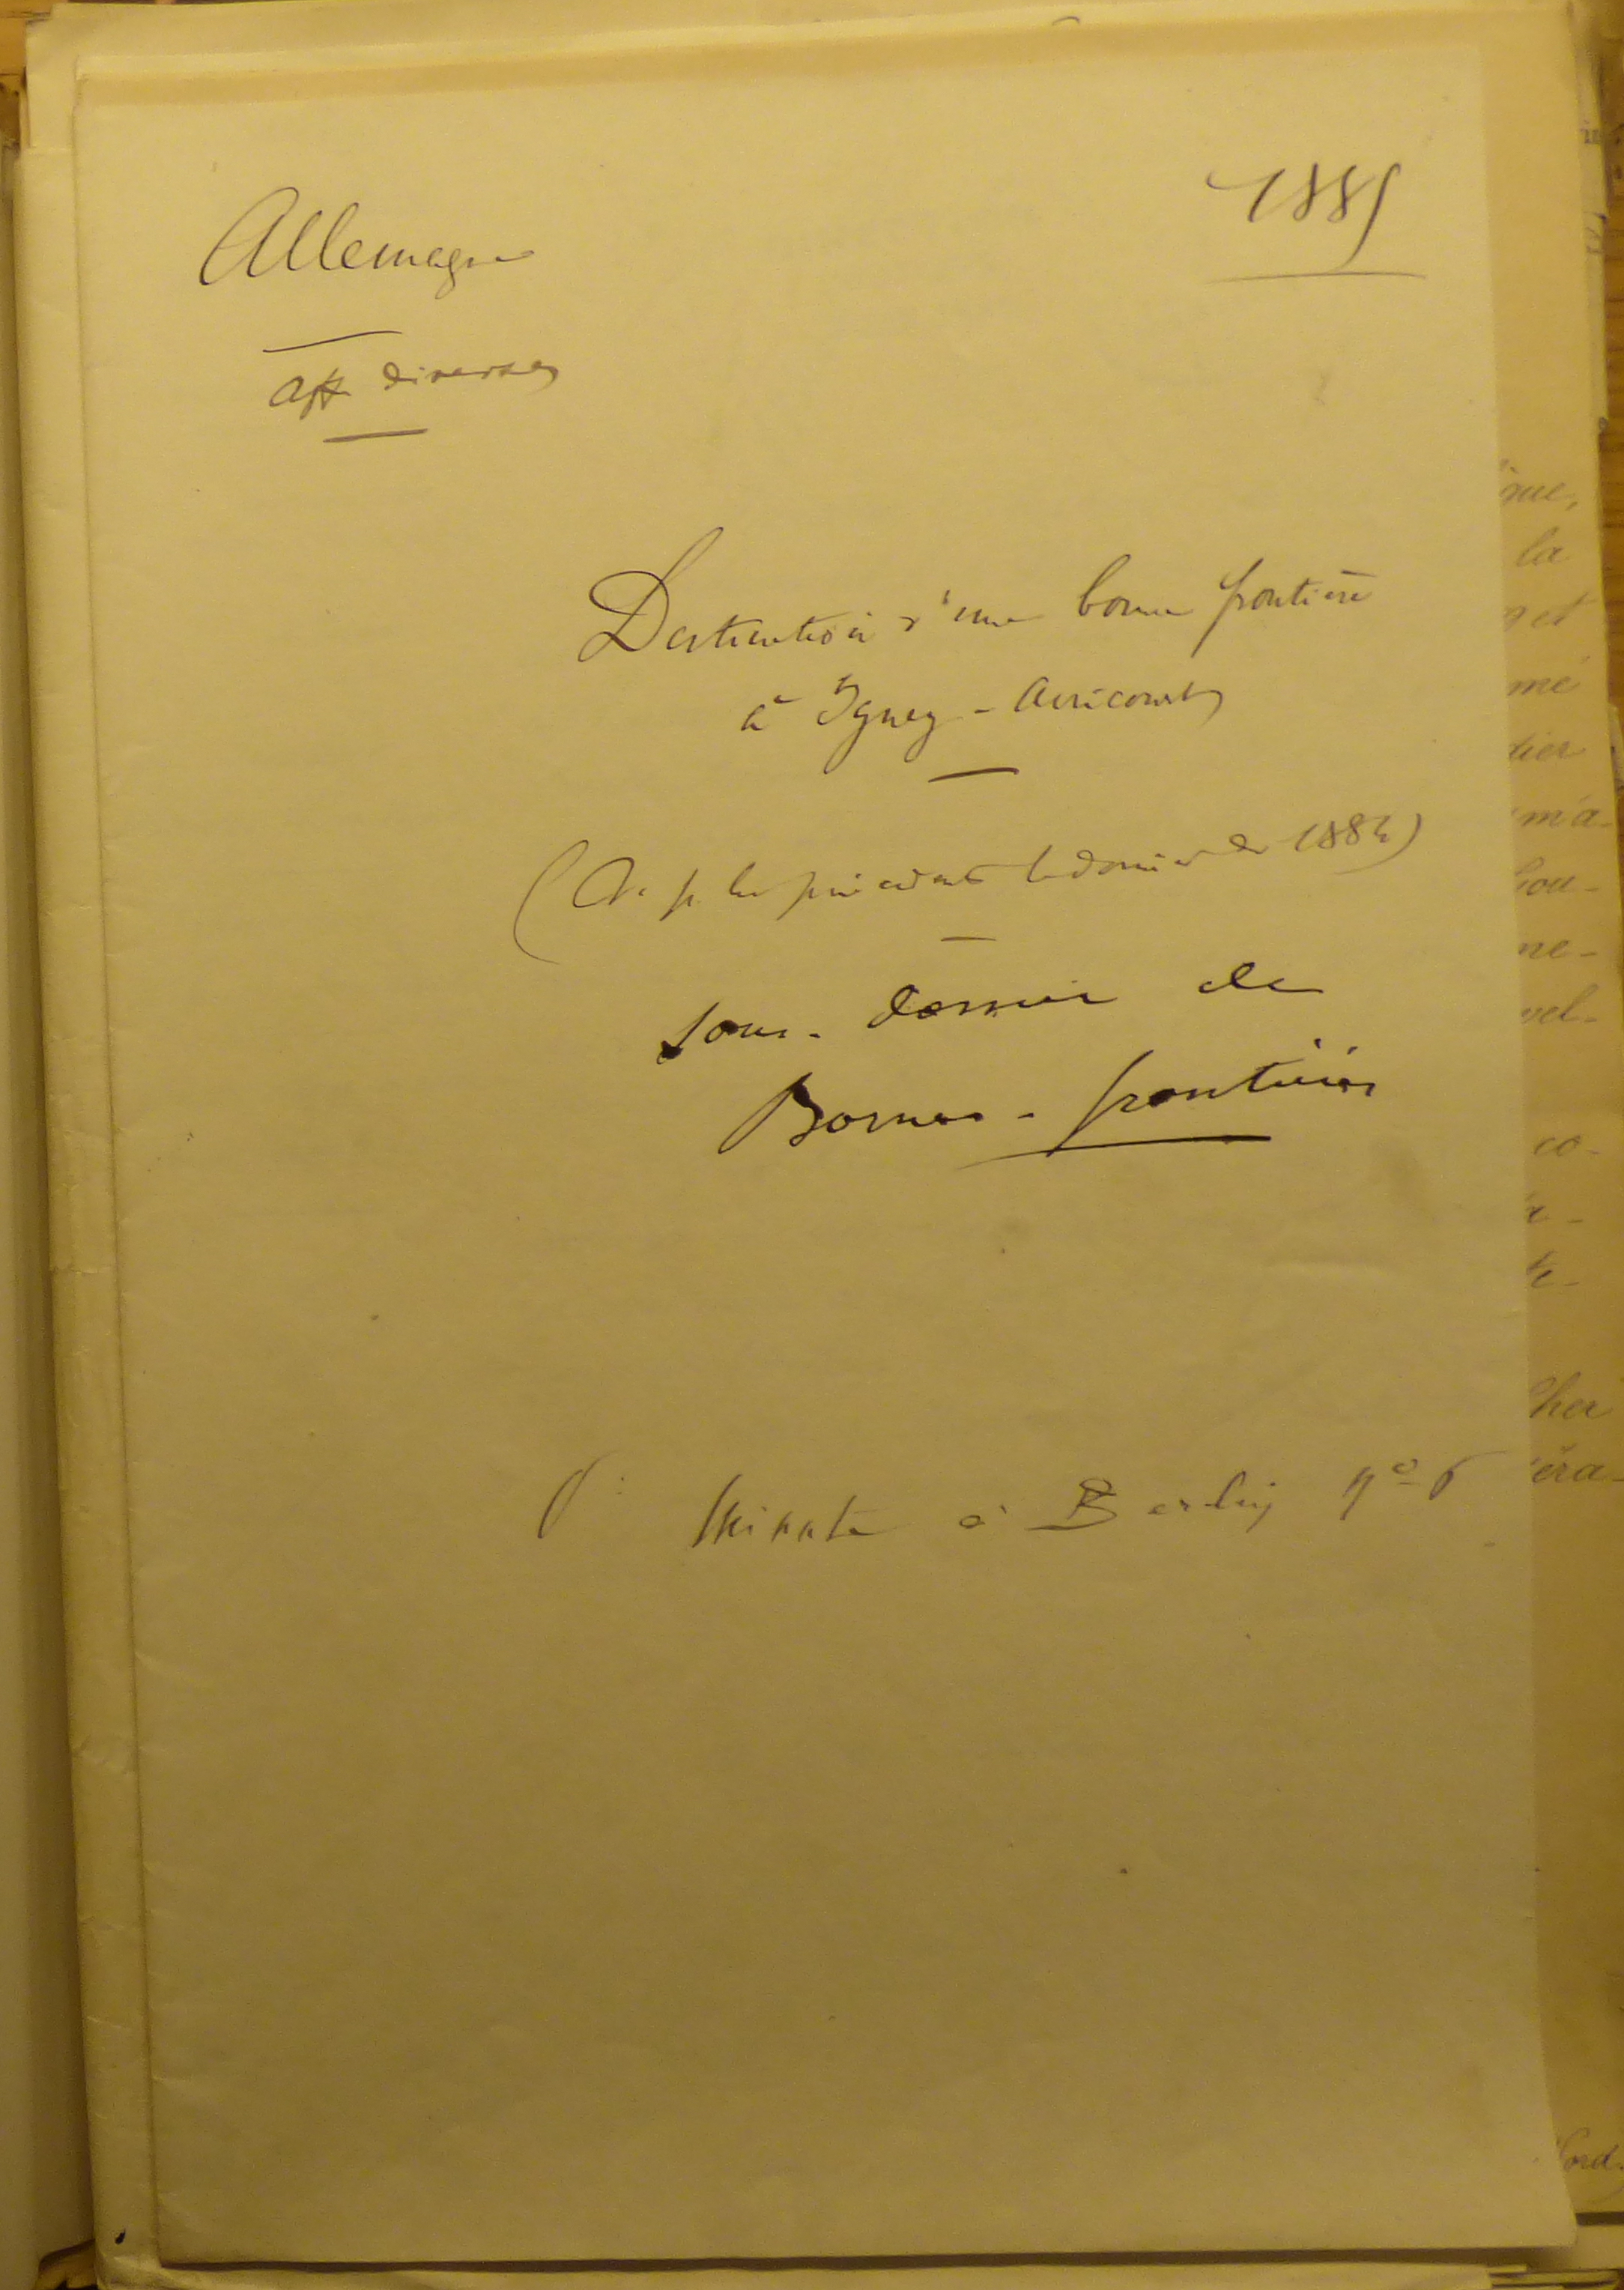 1885
Allemagne
Aff diverses
Destruction d'une borne frontière
à Igney - Avricourt
(V. p. les précédents le dossier de 1884)
Sous-dossier de
Bornes-frontières
V: Minute à Berlin nº 6
nue,
la
get
mé
tier
m'a
hou-
ne-
vel-
co-
her
éra-